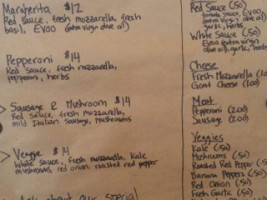 Margherita $12
Red Sauce, fresh mozzarella, fresh
basil, EVOO (extra virgin olive oil)
Pepperoni $14
Red Sauce, fresh mozzarella,
pepperoni, herbs
Sausage & Mushroom $14
Red Sauce, fresh mozzarella,
mild Italian Sausage, mushrooms
Veggie $14
White Sauce, fresh mozzarella, kale
mushrooms, red onion, roasted red pepper
Ask about our special
Red Sauce (.50)
White Sauce (.50)
Cheese
Fresh Mozzarella
Goat Cheese (1.00)
Meat
Pepperoni (2.00)
Sausage (2.00)
Veggies
Kale (.50)
Mushrooms (.50)
Roasted Red Pepper
Banana Peppers (.50)
Red Onion (.50)
Fresh Garlic (.50)